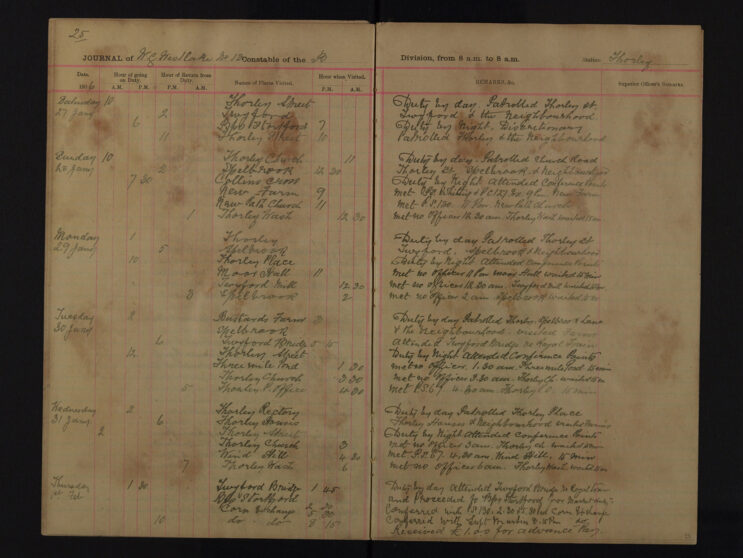 25
JOURNAL of W. G. Westlake No 12 Constable of the Division, from 8 a.m. to 8 a.m. Station Thorley
Date. Hour of going on Duty. Hour of Return from Duty. Names of Places Visited. Hour when Visited. REMARKS, &c. Superior Officer's Remarks.
1906 A.M. P.M. A.M. P.M. P.M. A.M.
Saturday 10 Thorley Street Duty by day. Patrolled Thorley St
27 Jany 2 Twyford Twyford & the Neighbourhood
6 Bps Stortford 7 Duty by Night. Discretionary
11 Thorley Street 10 Patrolled Thorley & the Neighbourhood
Sunday 10 Thorley Church 11 Duty by day. Patrolled Church Road
28 Jany 2 Spelbrook 12 30 Thorley St, Spelbrook & Neighbourhood
7 30 Collins Cross Duty by Night Attended Conference Points
New Farm 9 met 9 Pm New Farm
New Path Church 11 met P.S 130. 11 Pm New Path Church
1 Thorley Wash 12 30 met no Officer 12.30 am Thorley Wash waited 15 m
Monday 1 Thorley Duty by day Patrolled Thorley St
29 Jany 5 Spelbrook Twyford. Spelbrook & Neighbourhood
10 Thorley Place Duty by Night Attended Conference Points
Moor Hall 11 met no Officer 11 Pm Moor Hall waited 15 min
Twyford Mill 12 30 met no Officer 12.30 am. Twyford Mill waited 15 m
3 Spelbrook 2 met no Officer 2 am Spelbrook waited 15 m
Tuesday 2 Bustards Farm 3 Duty by day Patrolled Thorley, Spelbrook Lane
30 Jany Spelbrook & the Neighbourhood visited Farms
6 Twyford Bridge 5 15 Attended Twyford Bridge re Royal Train
12 Thorley Street Duty by Night Attended Conference Points
Three mile Pond 1 30 met no Officer. 1.30 am. Three mile Pond 15 min
Thorley Church 3 30 met no Officer 3.30 am. Thorley Ch waited 15 m
5 Thorley P. Office 4 30 met P.S 67 4.30 am Thorley P.O. 15 min
Wednesday 2 Thorley Rectory Duty by day Patrolled Thorley Place
31 Jany 6 Thorley Houses Thorley Houses & Neighbourhood visited Farms
2 Thorley Street Duty by Night Attended Conference Points
Thorley Church 3 met no Officer 3 am. Thorley Ch waited 15 m
Wind Hill 4 30 met P.S 67. 4.30 am. Wind Hill. 15 min
7 Thorley Wash 6 met no Officer 6 am. Thorley Wash waited 15 m
Thursday 1 30 Twyford Bridge 1 45 Duty by day Attended Twyford Bridge re Royal Train
1st Feb Bps Stortford and Proceeded to Bps Stortford
Corn Exchange 2 30 Conferred with P.S 130. 2.30 Corn Exchange
10 do do 8 15 Conferred with Supt
Received £1.00 for advance Pay.